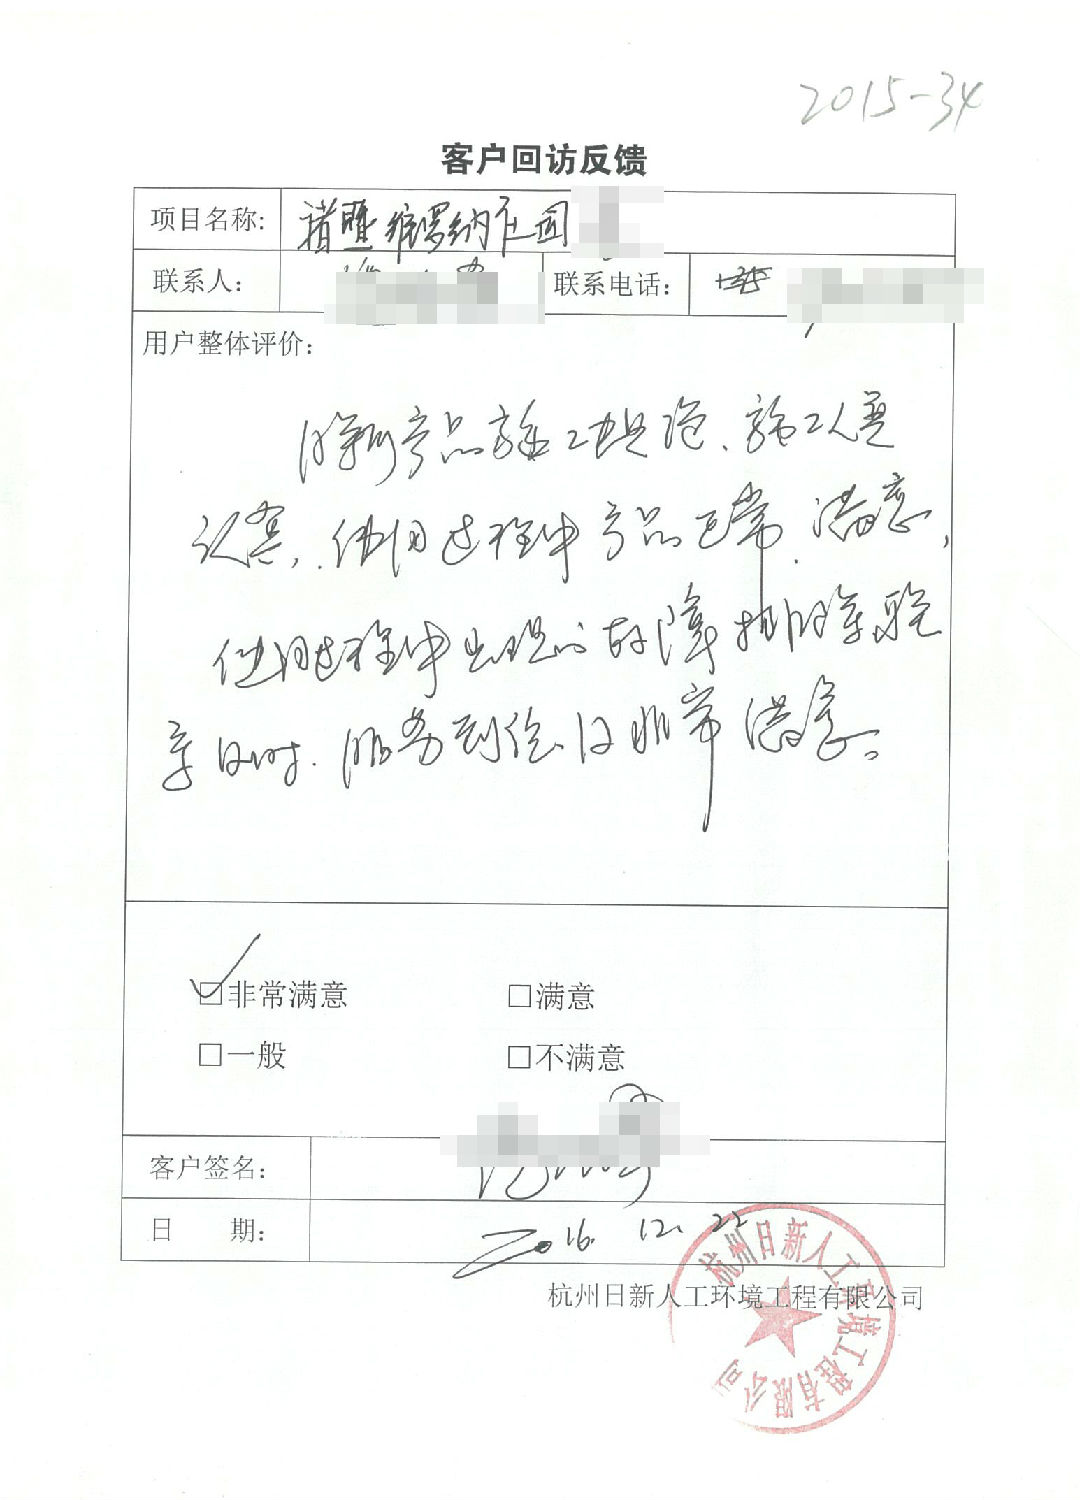 2015-34
客户回访反馈
项目名称: 诸暨维罗纳庄园
联系人: 联系电话:
用户整体评价:
日新产品施工规范、施工人员
认真,使用过程中产品正常、满意,
使用过程中出现的故障排除
及时、服务到位、非常满意。
非常满意 □满意
□一般 □不满意
客户签名:
日 期: 2016.12.22
杭州日新人工环境工程有限公司
杭州日新人工环境工程有限公司